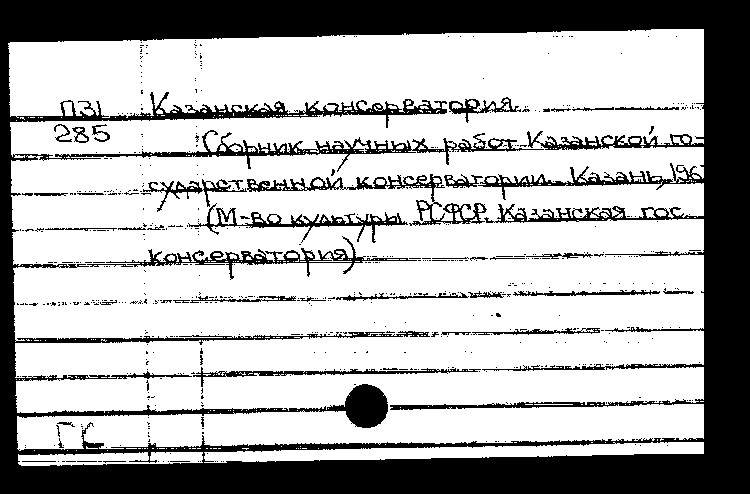 П31 Казанская консерватория.
285
Сборник научных работ Казанской го-
сударственной консерватории. Казань, 196
(М-во культуры РСФСР. Казанская гос.
консерватория)
ГК